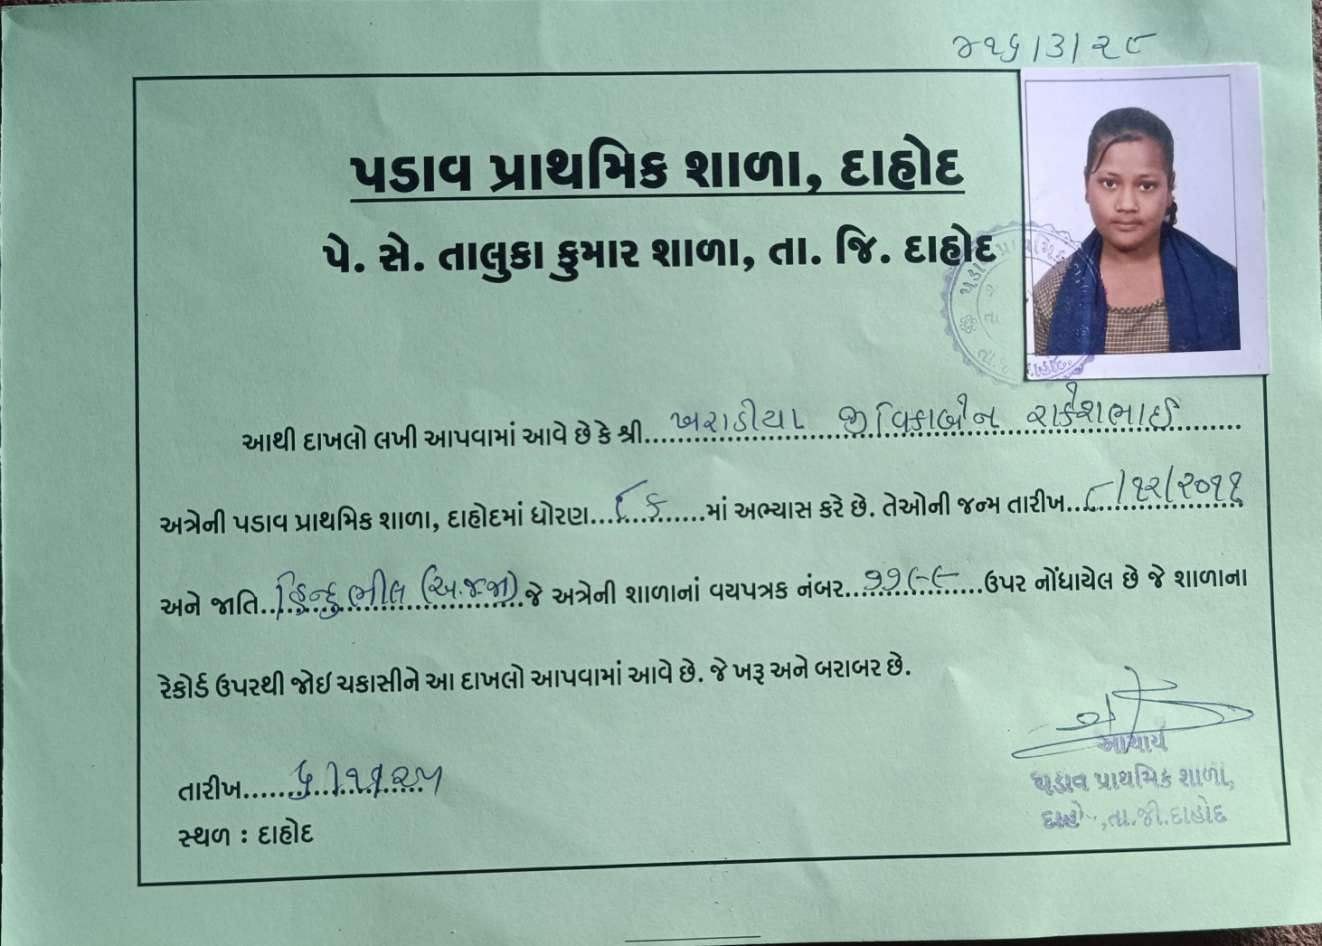 પડાવ પ્રાથમિક શાળા, દાહોદ
પે. સે. તાલુકા કુમાર શાળા, તા. જિ. દાહોદ
આથી દાખલો લખી આપવામાં આવે છે કે શ્રી....ખરાડીયા જીવિકાબેન રાકેશભાઈ....
અત્રેની પડાવ પ્રાથમિક શાળા, દાહોદમાં ધોરણ....૮ ક....માં અભ્યાસ કરે છે. તેઓની જન્મ તારીખ...૮/૧૨/૨૦૧૧
અને જાતિ...હિન્દુ ભીલ (અ.જ.જા)..જે અત્રેની શાળાનાં વયપત્રક નંબર...૧૧૯૯....ઉપર નોંધાયેલ છે જે શાળાના
રેકોર્ડ ઉપરથી જોઇ ચકાસીને આ દાખલો આપવામાં આવે છે. જે ખરૂ અને બરાબર છે.
આચાર્ય
પડાવ પ્રાથમિક શાળા,
તા.જી.દાહોદ
તારીખ......
સ્થળ : દાહોદ